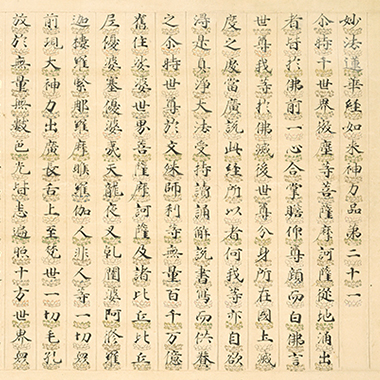 妙法蓮華經如來神力品第二十一
尒時千世界微塵等菩薩摩訶薩從地涌出
者皆於佛前一心合掌瞻仰尊顏而白佛言
世尊我等於佛滅後世尊分身所在國土滅
度之處當廣說此經所以者何我等亦自欲
得是真淨大法受持讀誦解說書寫而供養
之尒時世尊於文殊師利等無量百千万億
舊住娑婆世界菩薩摩訶薩及諸比丘比丘
尼優婆塞優婆夷天龍夜叉乾闥婆阿修羅
迦樓羅緊那羅摩睺羅伽人非人等一切眾
前現大神力出廣長舌上至梵世一切毛孔
放於無量無數色光皆悉遍照十方世界眾